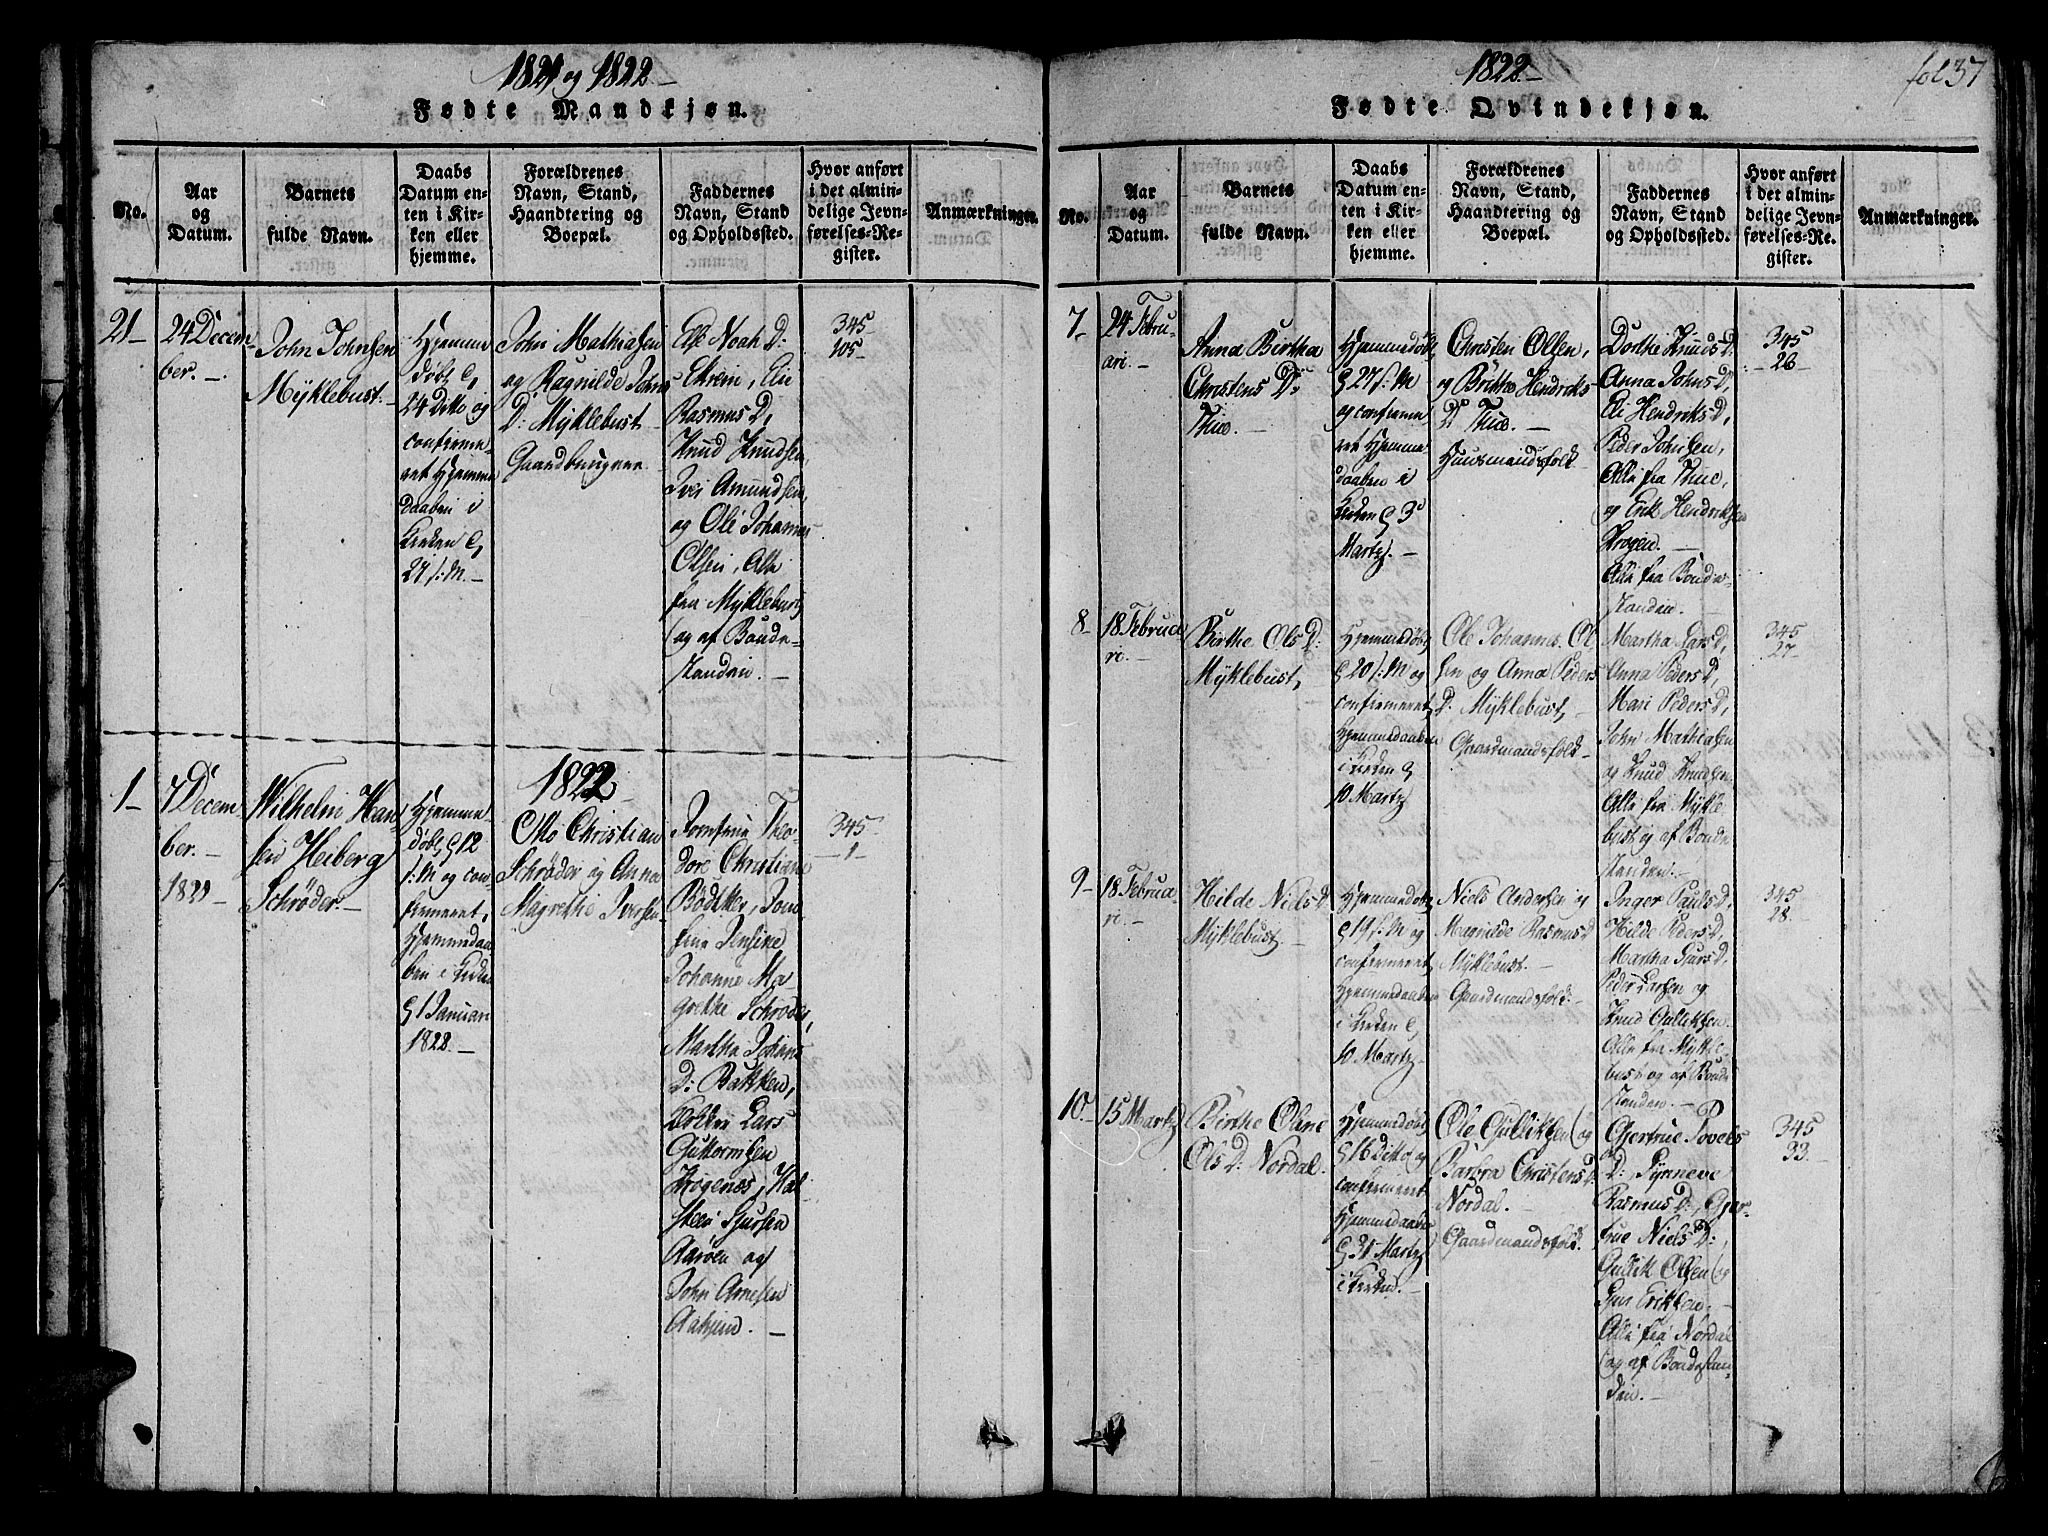 1821 og 1822
Fødte Mandkjøn.
No.
Aar
og
Datum.
Barnets
fulde Navn.
Daabs
Datum en-
ten i Kir-
ken eller
hjemme.
Forældrenes
Navn, Stand,
Haandtering og
Boepæl.
Faddernes
Navn, Stand
og Opholdssted.
Hvor anført
i det almin-
delige Jevn-
førelses-Re-
gister.
Anmærkninger.
21
24 Decem-
ber.
John Johnsen
Myklebust.
Hjemme
døbt
24 Ditto og
confirme
ret Hjemme
daaben i
Kirken
27 s: M.
John Mathiasen
og Ragnilde Johns
D: Myklebust
Gaardbrugere
Else Noah D:
Ekrein, Eli
Rasmus D,
Knud Knudsen,
Iver Amundsen,
og Ole Johannes
Olsen, Alle
fra Myklebust
og af Bonde-
standen.
345
105
1822
1
7 Decem
ber.
1821
Wilhelm Han
sen Heiberg
Schrøder.
Hjemme
døbt 12
s: M og con-
firmeret
Hjemmedaa
ben i Kirken
1 Januari
1822.
Otto Christian
Schrøder og Anna
Magrethe Iversen
Jomfrue Theo
dore Christiane
Bødtker, Jom
frue Jensine
Johanne Ma
grethe Schrøder,
Martha Johans
D: Bakken,
Lars
Guttormsen
Krogenæs, Hal
steen Sjursen
Aarøen og
John Arnesen
345
1
1822
fol 37
Fødte Qvindekjøn.
No.
Aar
og
Datum.
Barnets
fulde Navn.
Daabs
Datum en-
ten i Kir-
ken eller
hjemme.
Forældrenes
Navn, Stand,
Haandtering og
Boepæl.
Faddernes
Navn, Stand
og Opholdssted.
Hvor anført
i det almin-
delige Jevn-
førelses-Re-
gister.
Anmærkninger.
7
24 Febru-
ari.
Anna Birtha
Christens D:
Thue.
Hjemmedøbt
27 s: M
og confirme
ret Hjemme
daaben i
Kirken 3d
Martz.
Christen Olsen,
og Britthe Hendriks
D: Thue.
Huusmandsfolk
Dorthe Knuds D.
Anna Johns D,
Eli Hendriks D,
Peder Johnsen,
Alle fra Thue,
og Erik Hendriksen
Krogen.
Alle fra Bonde-
standen.
345
26
8
18 Februa
ri.
Birthe Ols D:
Myklebust,
Hjemmedøbt
20 s: M og
confirmeret
Hjemmedaaben
i Kirken
10 Martz
Ole Johannes Ol
sen og Anna Peders
D: Myklebust,
Gaardmandsfolk
Martha Lars D,
Anna Peders D,
Mari Peders D,
John Mathiasen
og Knud Knudsen
Alle fra Mykle
bust og af Bonde
standen.
345
27
9
18 Februa
ri.
Hilde Niels D.
Myklebust.
Hjemmedøbt
19 s: M og
confirmeret
Hjemmedaaben
i Kirken
10 Martz
Niels Andersen og
Magnilde Rasmus D
Myklebust.
Gaardmandsfolk
Inger Pauls D,
Hilde Peders D,
Martha Sjurs D,
Peder Larsen og
Knud Gulliksen.
Alle fra Mykle
bust og af Bonde
standen.
345
28.
10
15 Martz
Birthe Oline
Ols D: Nordal.
Hjemmedøbt
16 Ditto og
confirmeret
Hjemmedaaben
31 Martz
i Kirken.
Ole Gulliksen og
Barbra Christens D.
Nordal.
Gaardmandsfolk.
Gjertrue Povels
D: Synneve
Rasmus D:, Gjer-
true Niels D:,
Gullik Olsen og
Sjur Eriksen.
Alle fra Nordal
og af Bondestan
den.
345
33.